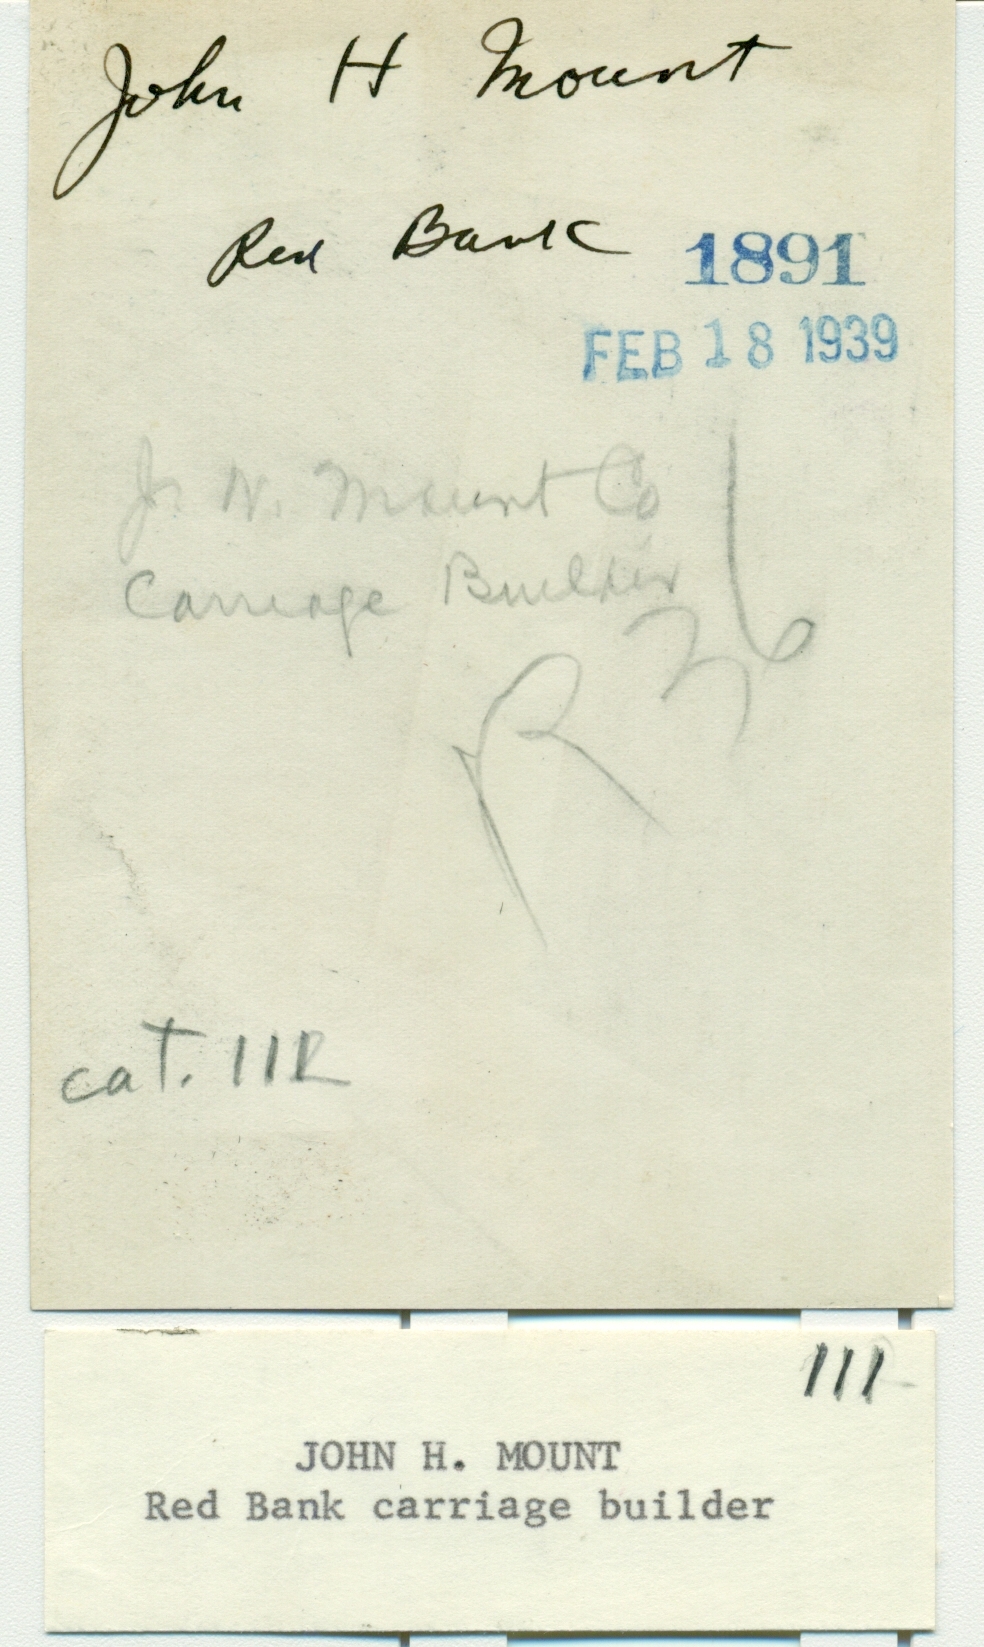 John H Mount
Red Bank
1891
FEB 18 1939
J. N. Mount Co
Carriage Builder
R 36
cat. 112
111
JOHN H. MOUNT
Red Bank carriage builder